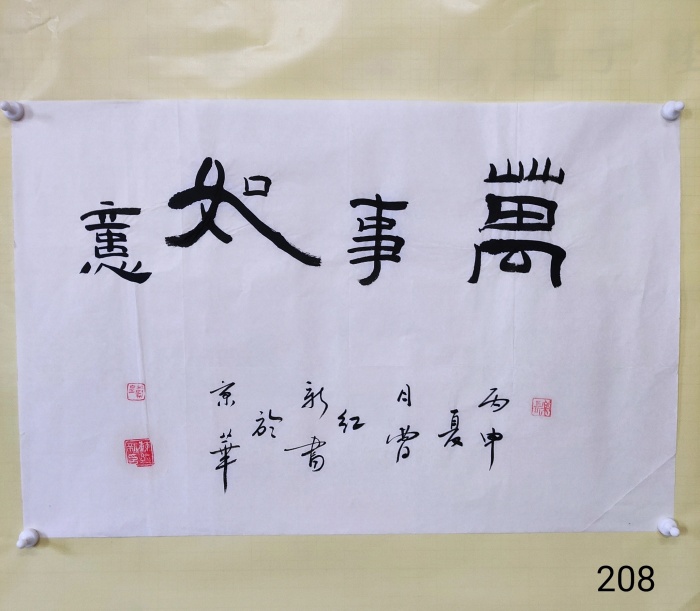 萬事如意
丙申
夏
月曹
紅
新書
於
京華
208